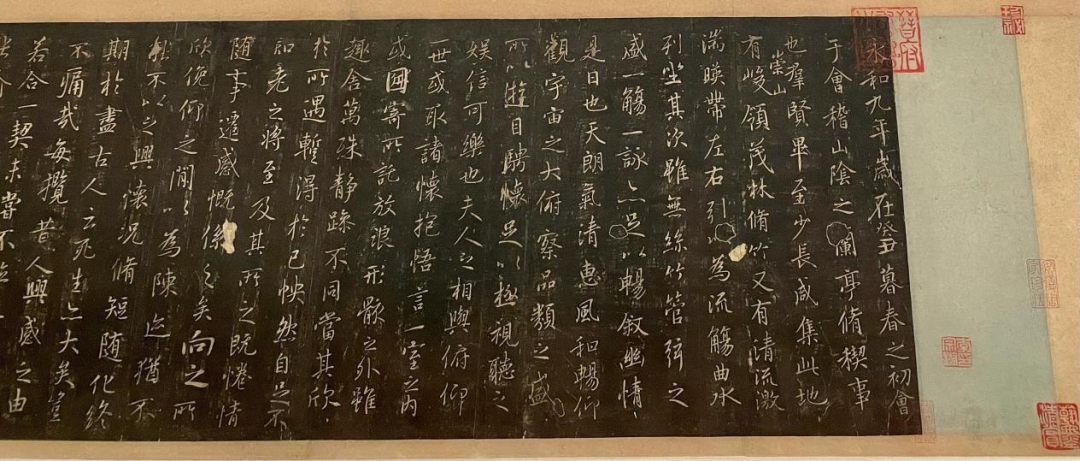 永和九年歲在癸丑暮春之初會
于會稽山陰之蘭亭脩稧事
也羣賢畢至少長咸集此地
有崇山峻領茂林脩竹又有清流激
湍暎帶左右引以為流觴曲水
列坐其次雖無絲竹管弦之
盛一觴一詠亦足以暢敘幽情
是日也天朗氣清惠風和暢仰
觀宇宙之大俯察品類之盛
所以遊目騁懷足以極視聽之
娛信可樂也夫人之相與俯仰
一世或取諸懷抱悟言一室之內
或因寄所託放浪形骸之外雖
趣舍萬殊靜躁不同當其欣
於所遇暫得於己怏然自足不
知老之將至及其所之既惓情
隨事遷感慨係之矣向之所
欣俛仰之閒以為陳迹猶不
能不以之興懷況脩短隨化終
期於盡古人云死生亦大矣豈
不痛哉每攬昔人興感之由
若合一契未嘗不